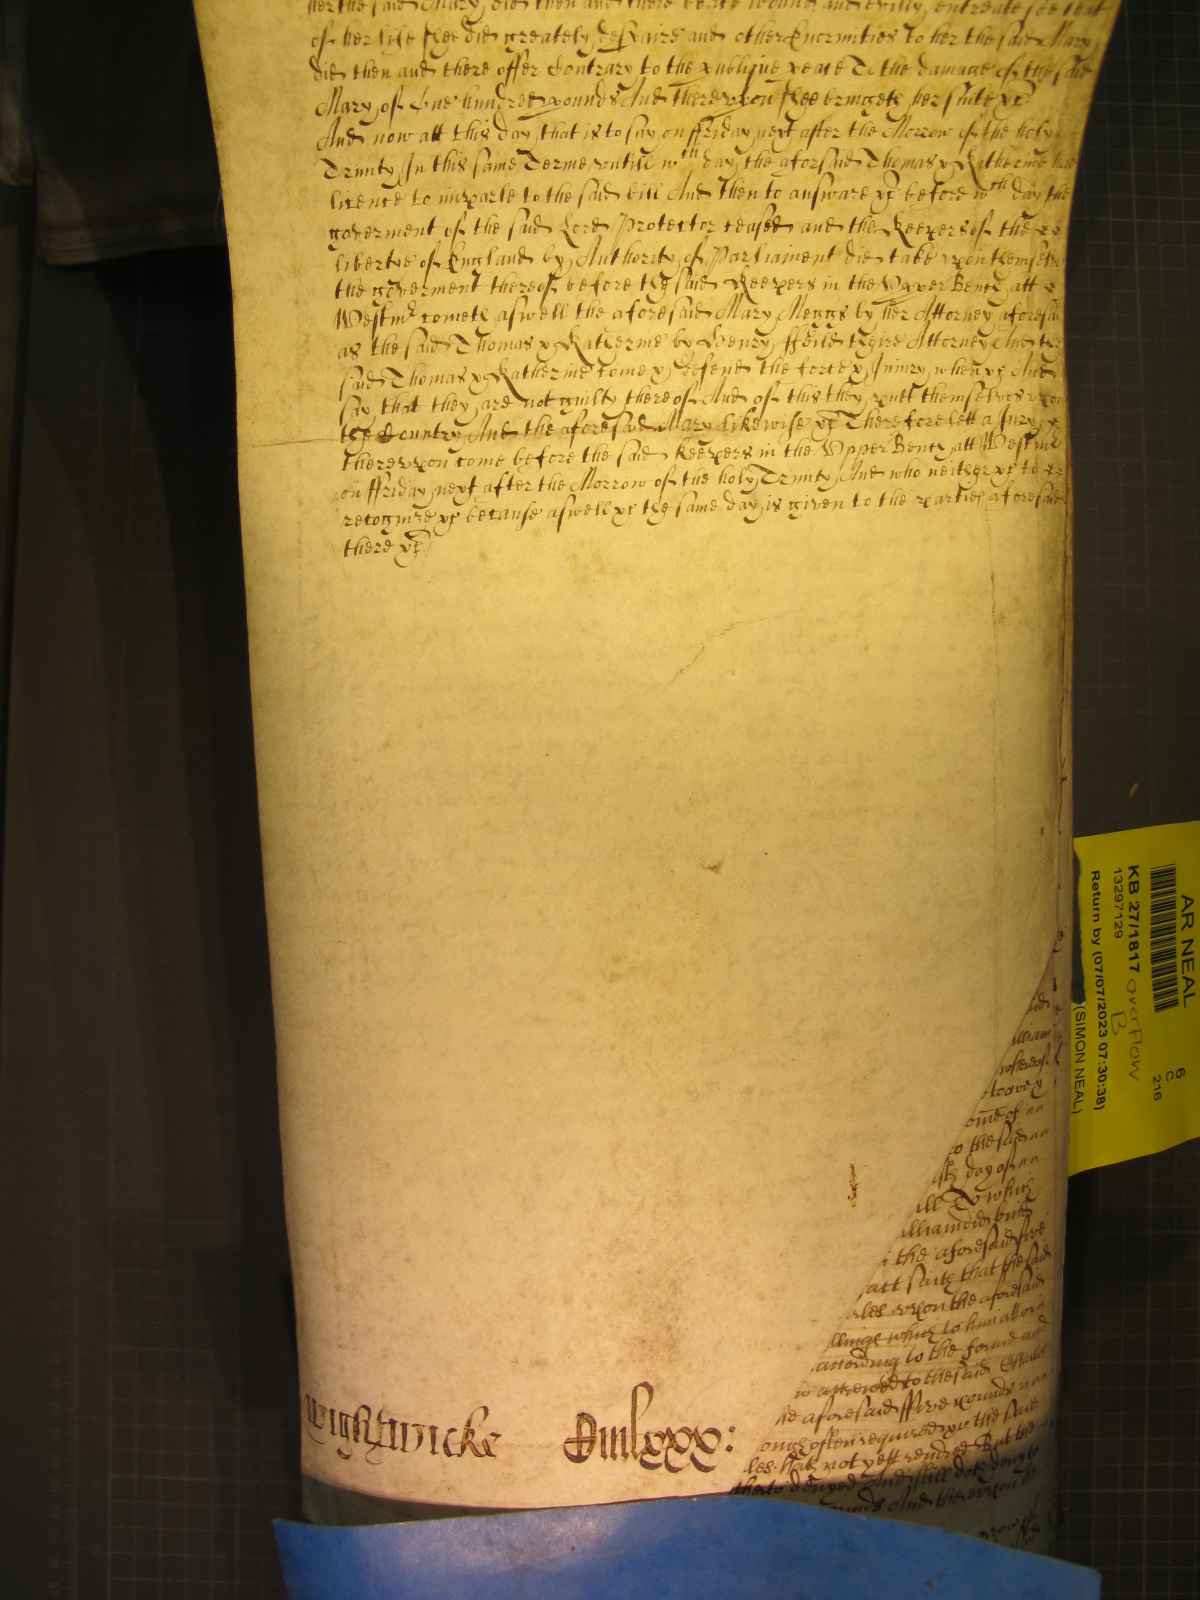 her the said Mary did then and there beate wound and evilly entreate soe that
of her life shee did greately despaire and other Enormities to her the said Mary
did then and there offer Contrary to the publique peace To the damage of the said
Mary of One hundred pounds And thereupon shee bringeth her suite &c
And now att this day that is to say on ffriday next after the Morrow of the holy
Trinity In this same Terme untill wch day the aforsaid Thomas & Katherine had
licence to imparle to the said bill And then to answare &c before wch day the
goverment of the said Lord Protector ceased and the Keepers of the
libertie of England by Authority of Parliament did take upon themselves
the goverment thereof before the said Keepers in the Upper Bench att
Westmr cometh aswell the aforesaid Mary Meggs by her Attorney aforesaid
as the said Thomas & Katherine by Henry ffeild theire Attorney And the
said Thomas & Katherine come & defend the force & Iniury when &c And
say that they are not guilty thereof And of this they putt themselves upon
the Country And the aforesaid Mary likewise &c Therefore lett a Jury
thereupon come before the said Keepers in the Upper Bench att Westmr
on ffriday next after the Morrow of the holy Trinity And who neither &c to
recognise &c because aswell &c the same day is given to the parties aforesaid
there &c
said
illiam
whereof
ome of
to the said
day of
ill To which
illiam did
the aforesaid five
att saith that the said
les upon the aforesaid
which to him
according to the forme and
to the said
aforesaid ffive pounds
often required &c the said
les hath not yett rendred But the
therto denyed And still doth deny to
pounds And thereupon
Wightwicke Dmlxxx:
AR NEAL
6
C
216
KB 27/1817 overflow
B
13297129
Return by (07/07/2023 07:30:38)
(SIMON NEAL)